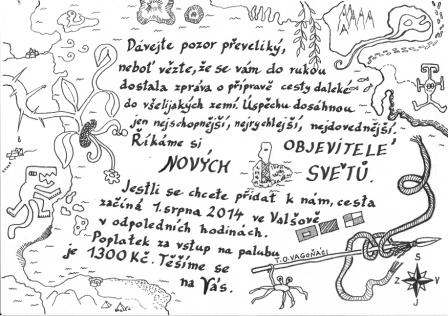 Dávejte pozor převeliký,
neboť vězte, že se vám do rukou
dostala zpráva o přípravě cesty daleké
do všelijakých zemí. Úspěchu dosáhnou
jen nejschopnější, nejrychlejší, nejdovednější.
Říkáme si OBJEVITELÉ
NOVÝCH SVĚTŮ.
Jestli se chcete přidat k nám, cesta
začíná 1. srpna 2014 ve Valšově
v odpoledních hodinách.
Poplatek za vstup na palubu
je 1300 Kč. Těšíme se
na Vás.
T.O. VAGOŇÁCI
S
Z V
J